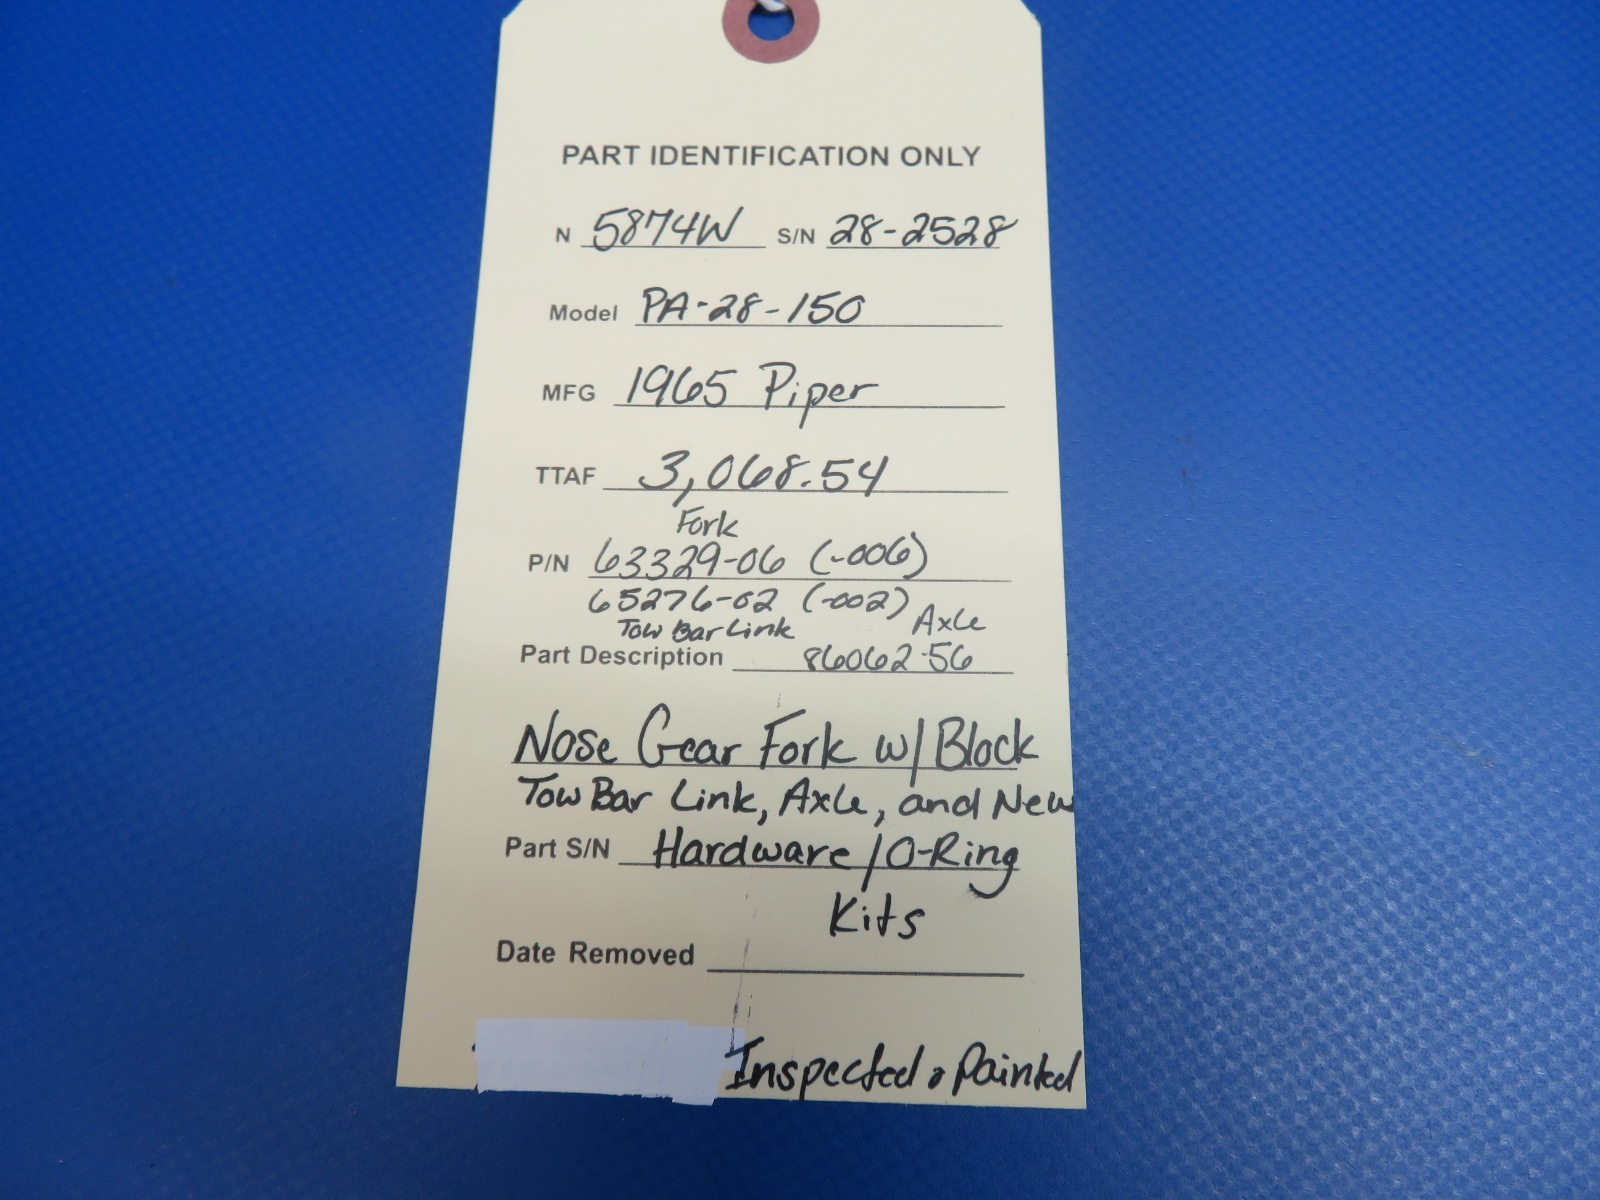 PART IDENTIFICATION ONLY
N 5874W S/N 28-2528
Model PA-28-150
MFG 1965 Piper
TTAF 3,068.54
Fork
P/N 63329-06 (-006)
65276-02 (-002) Axle
Tow Bar Link
Part Description 86062-56
Nose Gear Fork w/ Block
Tow Bar Link, Axle, and New
Part S/N Hardware / O-Ring
Kits
Date Removed
Inspected & Painted